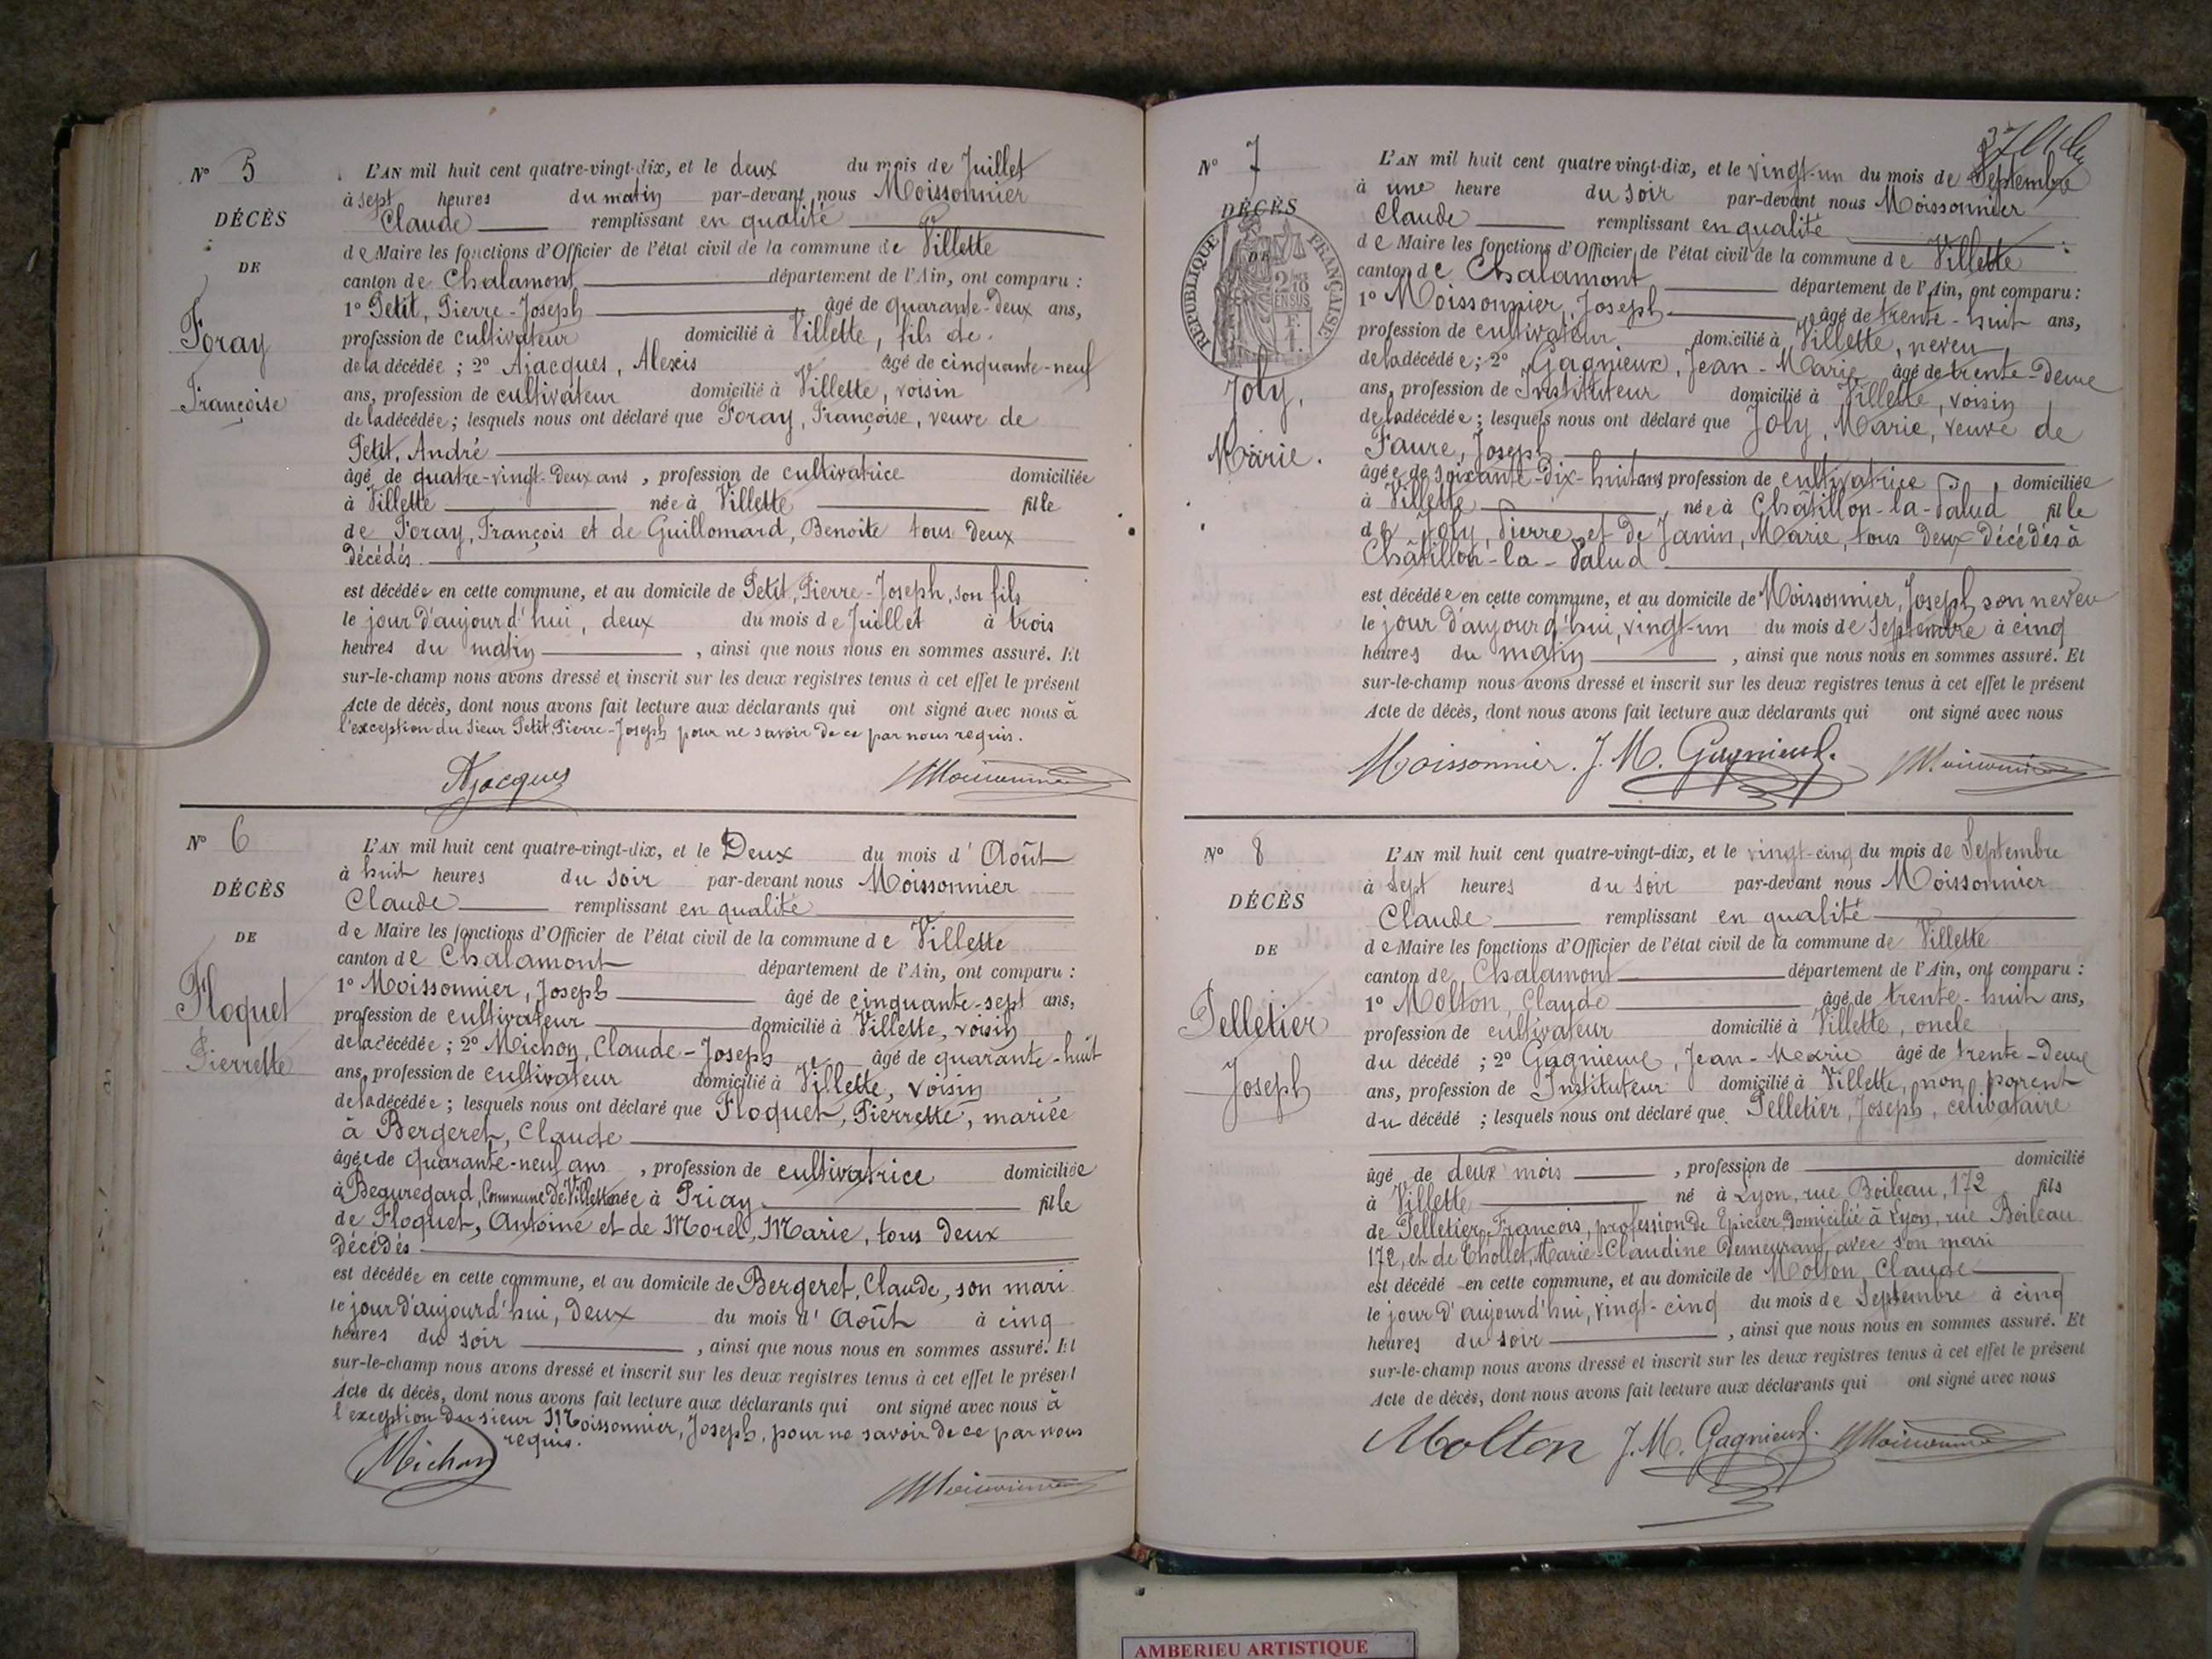 N° 5
DÉCÈS
DE
Foray
Françoise
L'AN mil huit cent quatre-vingt-dix, et le deux du mois de Juillet
à sept heures du matin par-devant nous Moissonnier
Claude remplissant en qualité
de Maire les fonctions d'Officier de l'état civil de la commune de Villette
canton de Chalamont département de l'Ain, ont comparu :
1° Petit, Pierre-Joseph âgé de quarante-deux ans,
profession de cultivateur domicilié à Villette, fils de
de la décédée ; 2° Ajacques, Alexis âgé de cinquante-neuf
ans, profession de cultivateur domicilié à Villette, voisin
de la décédée ; lesquels nous ont déclaré que Foray, Françoise, veuve de
Petit, André
âgé de quatre-vingt-deux ans, profession de cultivatrice domiciliée
à Villette née à Villette fille
de Foray, François et de Guillomard, Benoite tous deux
décédés
est décédée en cette commune, et au domicile de Petit, Pierre-Joseph, son fils
le jour d'aujourd'hui, deux du mois de Juillet à trois
heures du matin, ainsi que nous nous en sommes assuré. Et
sur-le-champ nous avons dressé et inscrit sur les deux registres tenus à cet effet le présent
Acte de décès, dont nous avons fait lecture aux déclarants qui ont signé avec nous à
l'exception du sieur Petit Pierre-Joseph pour ne savoir de ce par nous requis.
Ajacques Moissonnier
N° 6
DÉCÈS
DE
Floquet
Pierrette
L'AN mil huit cent quatre-vingt-dix, et le Deux du mois d'Août
à huit heures du soir par-devant nous Moissonnier
Claude remplissant en qualité
de Maire les fonctions d'Officier de l'état civil de la commune de Villette
canton de Chalamont département de l'Ain, ont comparu :
1° Moissonnier, Joseph âgé de cinquante-sept ans,
profession de cultivateur domicilié à Villette, voisin
de la décédée ; 2° Michon, Claude-Joseph âgé de quarante-huit
ans, profession de cultivateur domicilié à Villette, voisin
de la décédée ; lesquels nous ont déclaré que Floquet, Pierrette, mariée
à Bergeret, Claude
âgée de quarante-neuf ans, profession de cultivatrice domiciliée
à Beauregard, Commune de Villette née à Priay fille
de Floquet, Antoine et de Morel, Marie, tous deux
décédés
est décédée en cette commune, et au domicile de Bergeret, Claude, son mari
le jour d'aujourd'hui, deux du mois d'Août à cinq
heures du soir, ainsi que nous nous en sommes assuré. Et
sur-le-champ nous avons dressé et inscrit sur les deux registres tenus à cet effet le présent
Acte de décès, dont nous avons fait lecture aux déclarants qui ont signé avec nous à
l'exception du sieur Moissonnier, Joseph, pour ne savoir de ce par nous
requis.
Michon Moissonnier
N° 7
DÉCÈS
DE
RÉPUBLIQUE FRANÇAISE
Joly,
Marie.
L'AN mil huit cent quatre vingt-dix, et le vingt-un du mois de Septembre
à une heure du soir par-devant nous Moissonnier
Claude remplissant en qualité
de Maire les fonctions d'Officier de l'état civil de la commune de Villette
canton de Chalamont département de l'Ain, ont comparu :
1° Moissonnier, Joseph âgé de trente-huit ans,
profession de cultivateur domicilié à Villette, neveu
de la décédée ; 2° Gagnieux, Jean-Marie âgé de trente-deux
ans, profession de Instituteur domicilié à Villette, voisin
de la décédée ; lesquels nous ont déclaré que Joly, Marie, veuve de
Faure, Joseph
âgée de soixante-dix-huit ans profession de cultivatrice, domiciliée
à Villette née à Châtillon-la-Palud fille
de Joly, Pierre et de Janin, Marie, tous deux décédés à
Châtillon-la-Palud
est décédée en cette commune, et au domicile de Moissonnier, Joseph son neveu
le jour d'aujourd'hui, vingt-un du mois de Septembre à cinq
heures du matin, ainsi que nous nous en sommes assuré. Et
sur-le-champ nous avons dressé et inscrit sur les deux registres tenus à cet effet le présent
Acte de décès, dont nous avons fait lecture aux déclarants qui ont signé avec nous
Moissonnier. J. M. Gagnieux. Moissonnier
N° 8
DÉCÈS
DE
Pelletier
Joseph
L'AN mil huit cent quatre-vingt-dix, et le vingt-cinq du mois de Septembre
à sept heures du soir par-devant nous Moissonnier
Claude remplissant en qualité
de Maire les fonctions d'Officier de l'état civil de la commune de Villette
canton de Chalamont département de l'Ain, ont comparu :
1° Molton, Claude âgé de trente-huit ans,
profession de cultivateur domicilié à Villette, oncle
du décédé ; 2° Gagnieux, Jean-Marie âgé de trente-deux
ans, profession de Instituteur domicilié à Villette, non parent
du décédé ; lesquels nous ont déclaré que Pelletier, Joseph, célibataire
âgé de deux mois, profession de domicilié
à Villette né à Lyon, rue Boileau, 172 fils
de Pelletier, François, profession de Epicier domicilié à Lyon, rue Boileau
172, et de Chollet, Marie-Claudine demeurant avec son mari
est décédé en cette commune, et au domicile de Molton, Claude
le jour d'aujourd'hui, vingt-cinq du mois de Septembre à cinq
heures du soir, ainsi que nous nous en sommes assuré. Et
sur-le-champ nous avons dressé et inscrit sur les deux registres tenus à cet effet le présent
Acte de décès, dont nous avons fait lecture aux déclarants qui ont signé avec nous
Molton J. M. Gagnieux. Moissonnier
AMBERIEU ARTISTIQUE